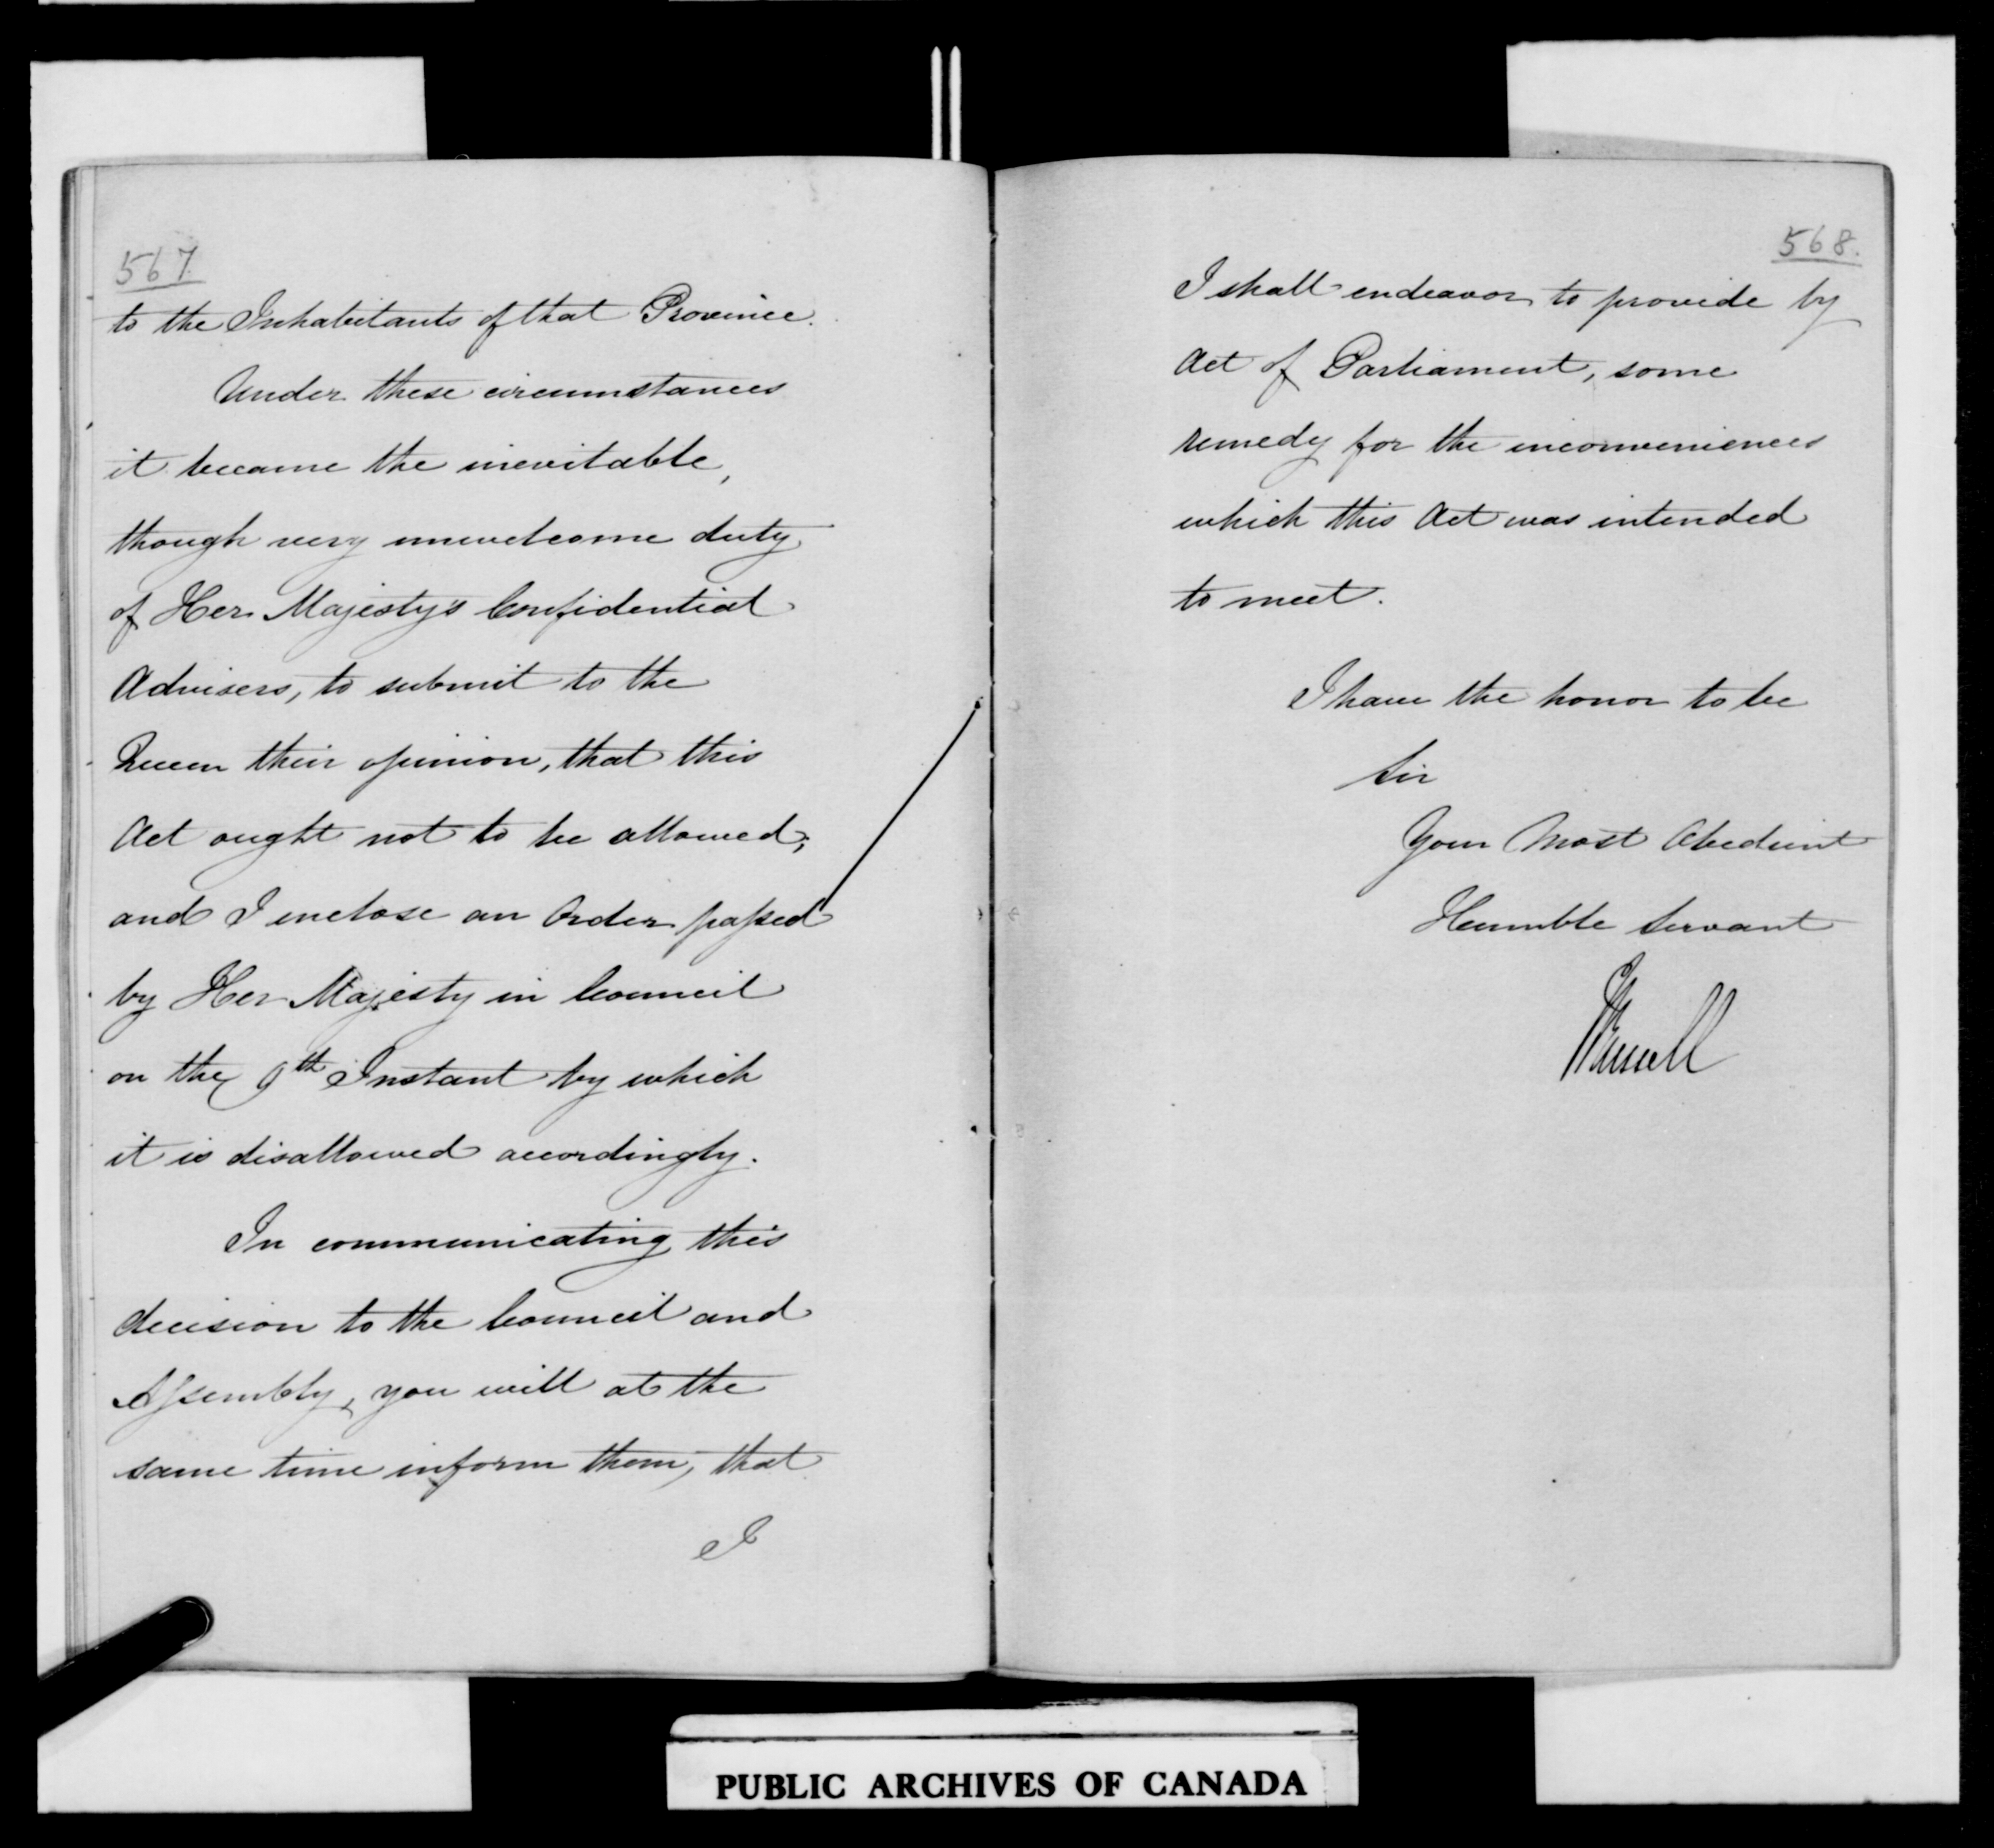 567.
to the Inhabitants of that Province.
Under these circumstances
it became the inevitable,
though very unwelcome duty
of Her Majesty's Confidential
Advisers, to submit to the
Queen their opinion, that this
Act ought not to be allowed;
and I inclose an Order passed
by Her Majesty in Council
on the 9th Instant by which
it is disallowed accordingly.
In communicating this
decision to the Council and
Assembly, you will at the
same time inform them, that
I
568.
I shall endeavor to provide by
Act of Parliament, some
remedy for the inconveniences
which this Act was intended
to meet.
I have the honor to be
Sir
Your Most Obedient
Humble Servant
J Russell
PUBLIC ARCHIVES OF CANADA